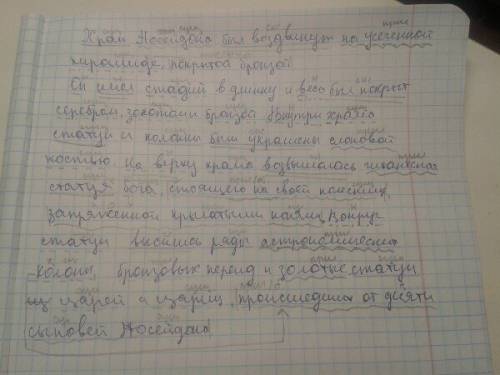 Храм Посейдона был воздвигнут на усеченной
пирамиде, покрытой бронзой.
Он имел стадий в длинну и весь был покрыт
серебром, золотом и бронзой. Внутри храма
статуи и колоны были украшены слоновой
костью. На верху храма возвышалась гигантская
статуя бога, стоящего на своей колеснице,
запряженной крылатыми конями. Вокруг
статуи высились ряды астрономических
колонн, бронзовых нереид и золотые статуи
из царей и цариц, происшедших от десяти
сыновей Посейдона